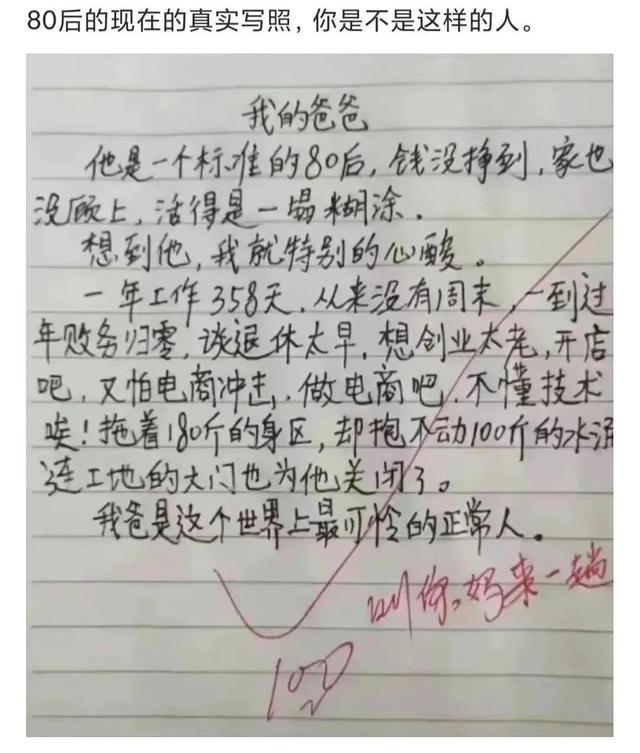 80后的现在的真实写照，你是不是这样的人。
我的爸爸
他是一个标准的80后，钱没挣到，家也
没顾上，活得是一塌糊涂．
想到他，我就特别的心酸。
一年工作358天，从来没有周末，一到过
年财务归零，谈退休太早，想创业太老，开店
吧，又怕电商冲击，做电商吧，不懂技术
唉！拖着180斤的身区，却抱不动100斤的水泥
连工地的大门也为他关闭了。
我爸是这个世界上最可怜的正常人。
叫你妈来一趟
100